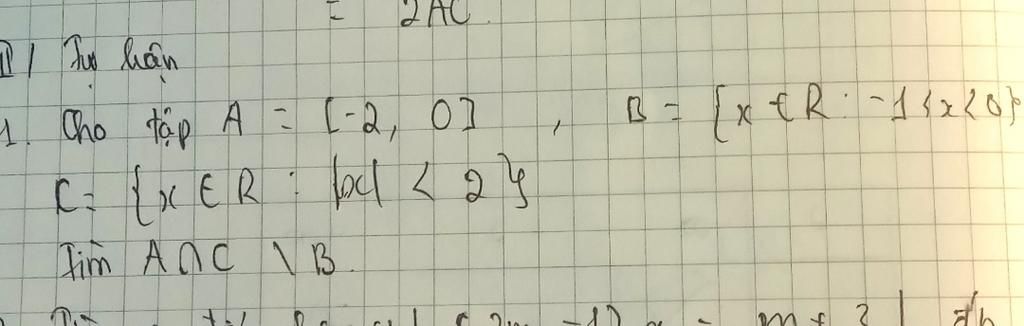 = 2AC.
II/ Tự luận
1. Cho tập A = [-2, 0] , B = {x ∈ R : -1 < x < 0}
C = {x ∈ R : |x| < 2}
Tìm A ∩ C \ B.